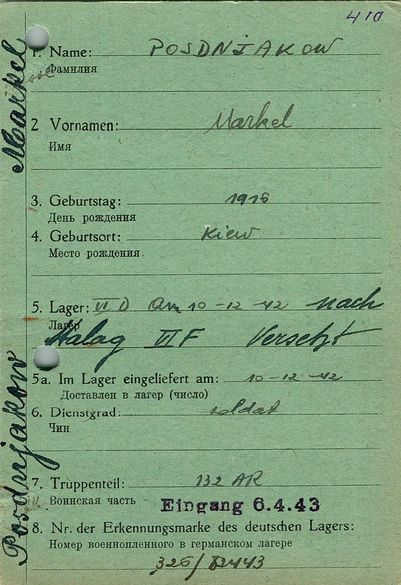 410
1. Name: POSDNJAKOW
Фамилия
2 Vornamen: Markel
Имя
3. Geburtstag: 1916
День рождения
4. Geburtsort: Kiew
Место рождения
5. Lager: VI D Am 10-12-42 nach
Лагер
Stalag VI F Versetzt
5a. Im Lager eingeliefert am: 10-12-42
Доставлен в лагер (число)
6. Dienstgrad: soldat
Чин
7. Truppenteil: 132 AR
Воинская часть
Eingang 6.4.43
8. Nr. der Erkennungsmarke des deutschen Lagers:
Номер военнопленного в германском лагере
326/
Posdnjakow Markel